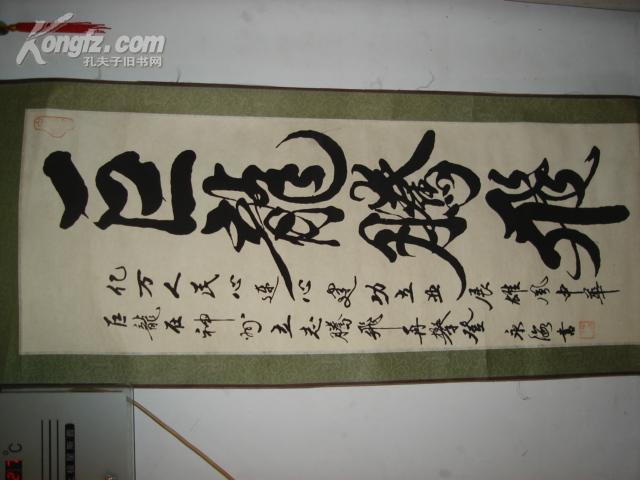 Kongfz.com
孔夫子旧书网
巨龍騰飛
亿万人民心连心建功立业展雄風中華
巨龍在神州立志騰飛再攀登 永海書
°C